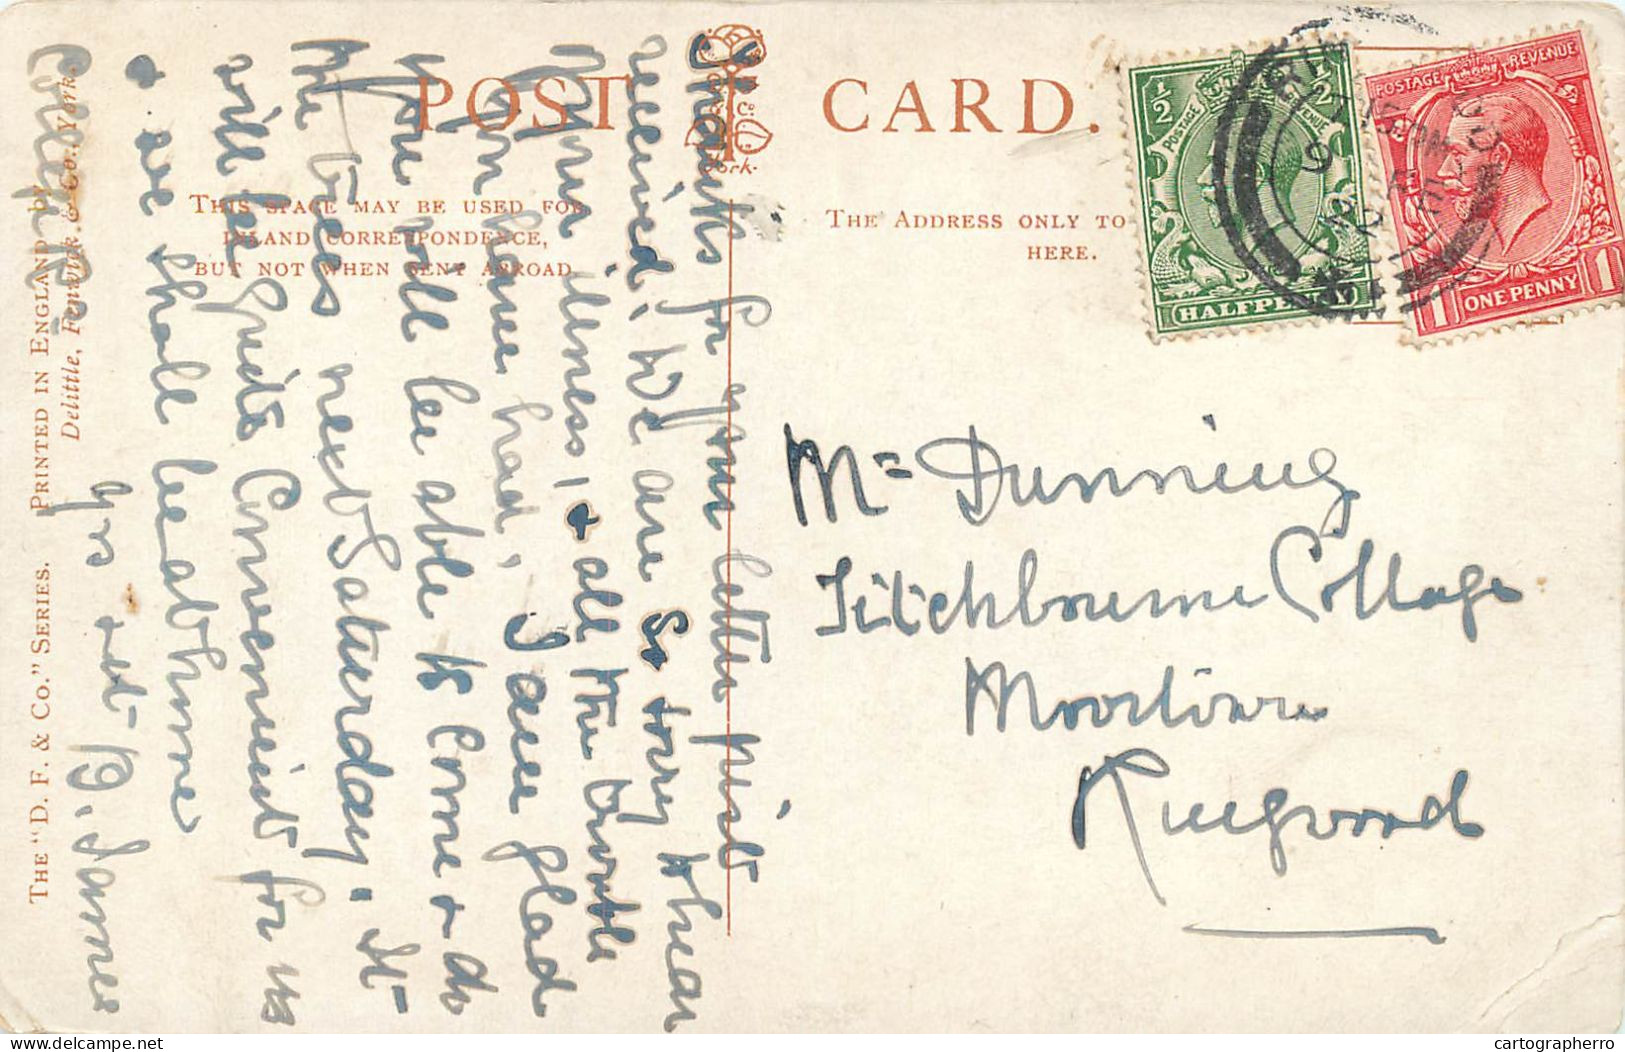 POST CARD.
THIS SPACE MAY BE USED FOR
INLAND CORRESPONDENCE,
BUT NOT WHEN SENT ABROAD.
THE ADDRESS ONLY TO
HERE.
York.
½ ½
POSTAGE REVENUE
HALFPENNY
POSTAGE REVENUE
1 ONE PENNY 1
Thanks for your letter just
received, We are so sorry to hear
of your illness, & all the trouble
you have had, I am glad
you will be able to come & do
the trees next Saturday. It
will be quite convenient for us
& we shall be at home
Yrs
Mr Dunning
Titchbourne Cottage
Moortown
Ringwood
THE "D. F. & CO." SERIES. PRINTED IN ENGLAND BY
Delittle, Fenwick & Co., York.
cartographerro